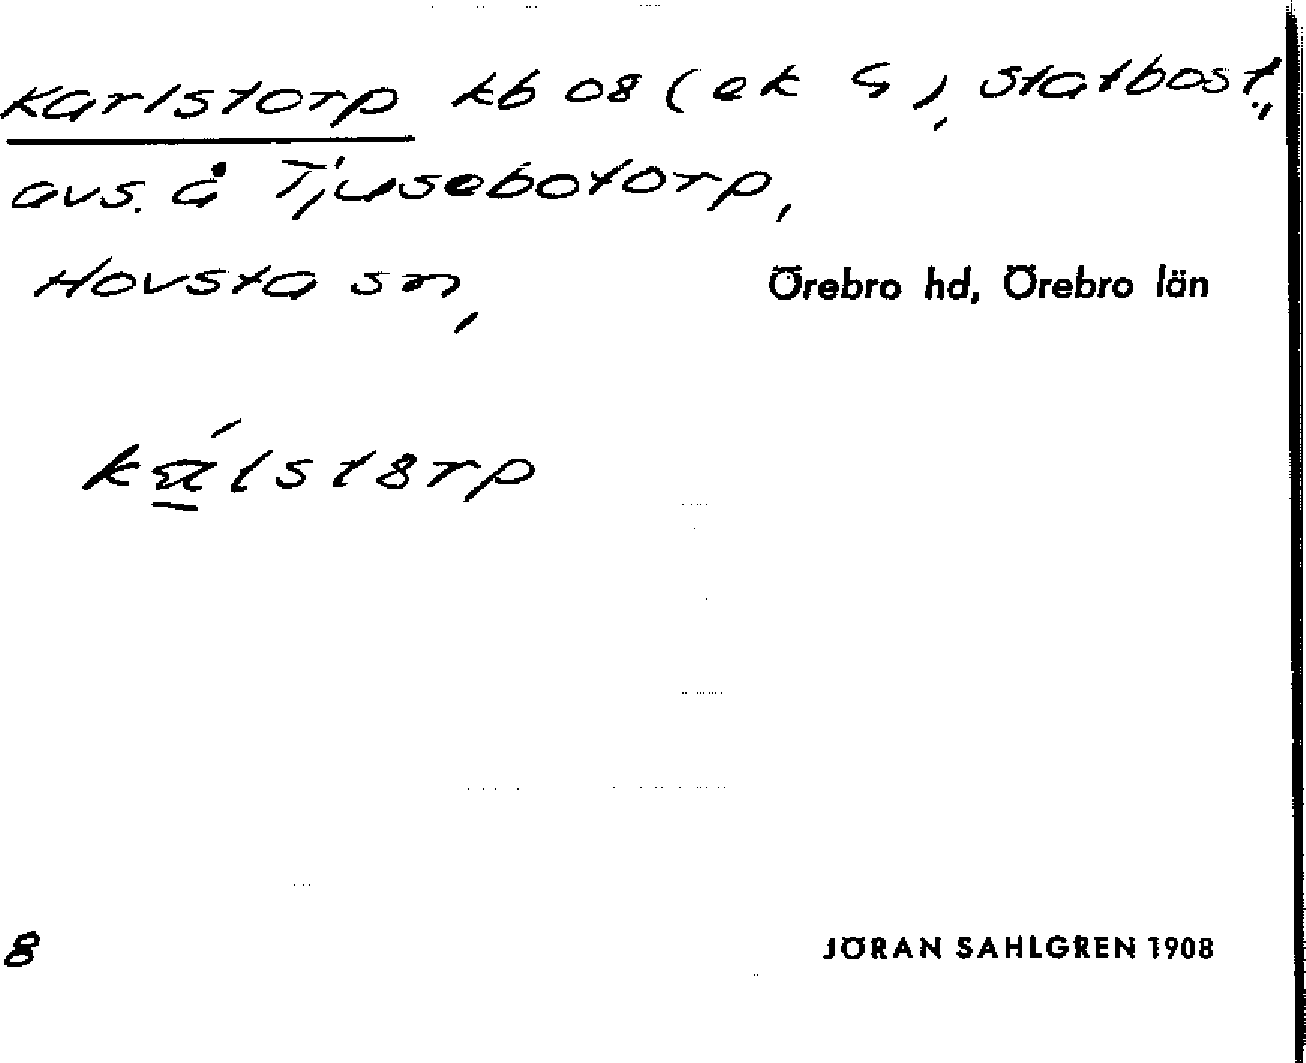 Karlstorp kb 08 (ek G), statbost.,
avs. å Tjusebotorp,
Hovsta sn, Örebro hd, Örebro län
8
JÖRAN SAHLGREN 1908